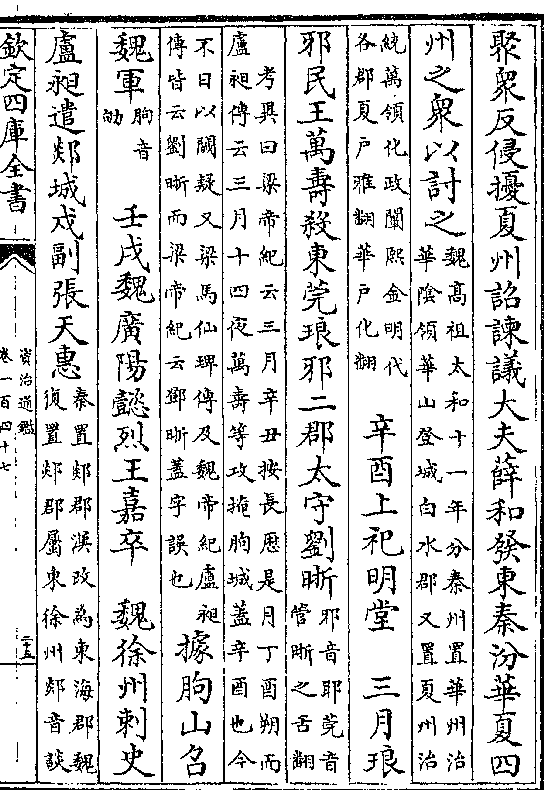 聚衆反侵擾夏州詔諫議大夫薛和發東秦汾華夏四
州之衆以討之魏髙祖太和十一年分秦州置華州治
華隂領華山登城白水郡又置夏州治
統萬領化政闡熙金明代
各郡夏戶雅翻華戶化翻
辛酉上祀明堂 三月琅
邪民王萬壽殺東莞琅邪二郡太守劉晣邪音耶莞音
管晣之舌翻
考異曰梁帝紀云三月辛丑按長厯是月丁酉朔而
盧昶傳云三月十四夜萬壽等攻掩朐城蓋辛酉也今
不日以闕疑又梁馬仙琕傳及魏帝紀盧昶
傳皆云劉晣而梁帝紀云鄧晣蓋字誤也
據朐山召
魏軍朐音
劬
壬戌魏廣陽懿烈王嘉卒 魏徐州刺史
盧昶遣郯城戍副張天惠秦置郯郡漢改為東海郡魏
復置郯郡屬東徐州郯音談
欽定四庫全書
資治通鑑
卷一百四十七
二十五